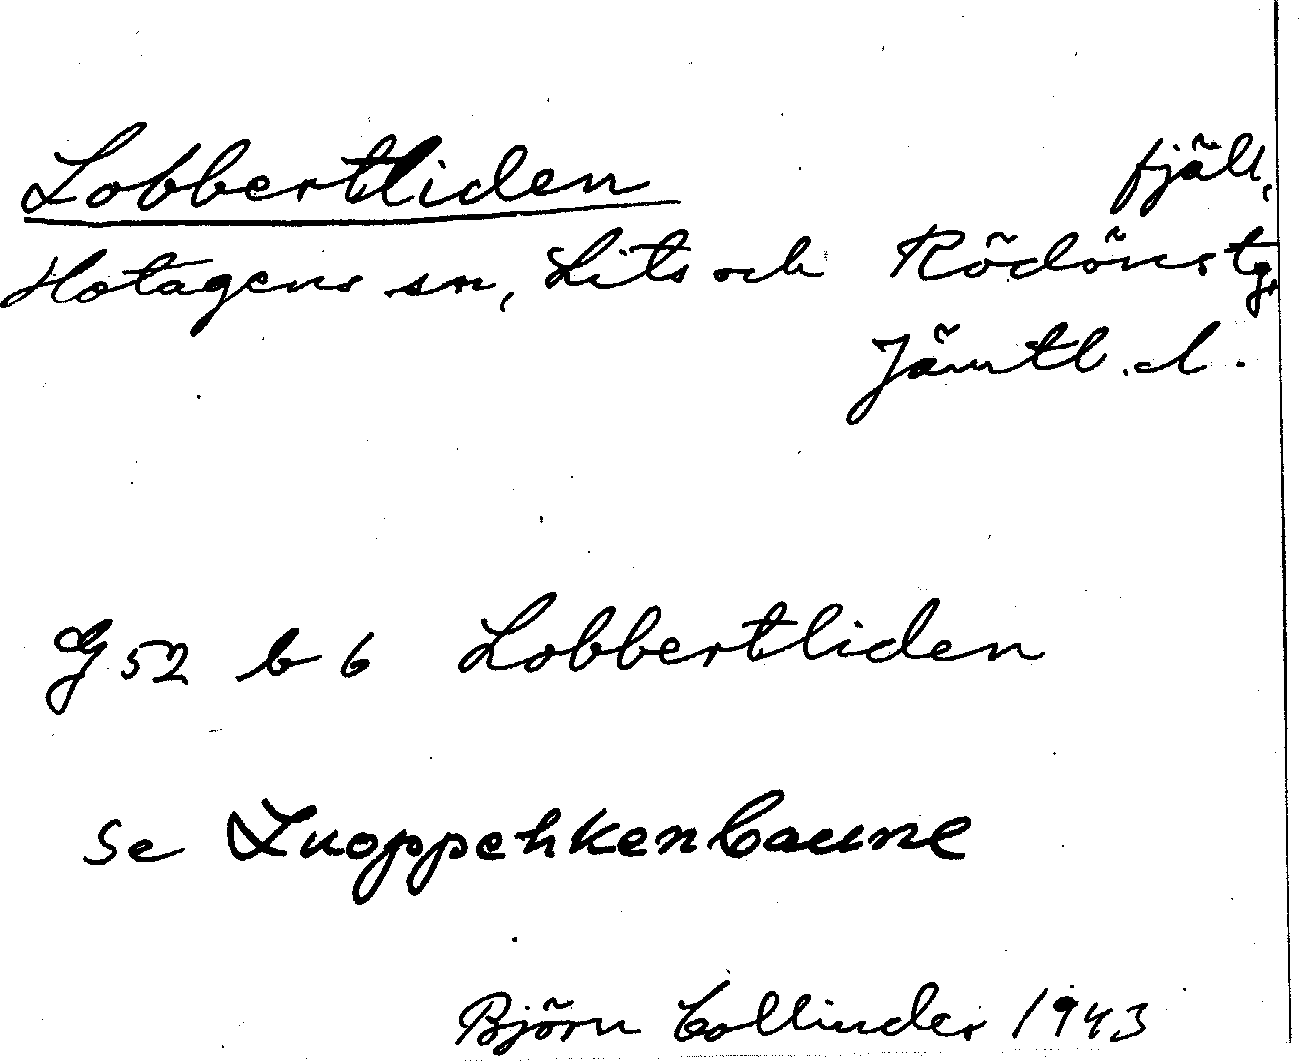 Lobbertliden fjäll,
Hotagens sn, Lits och Rödöns tg,
Jämtl. l.
G 52 b 6 Lobbertliden
Se Luoppehkenbaune
Björn Collinder 1943